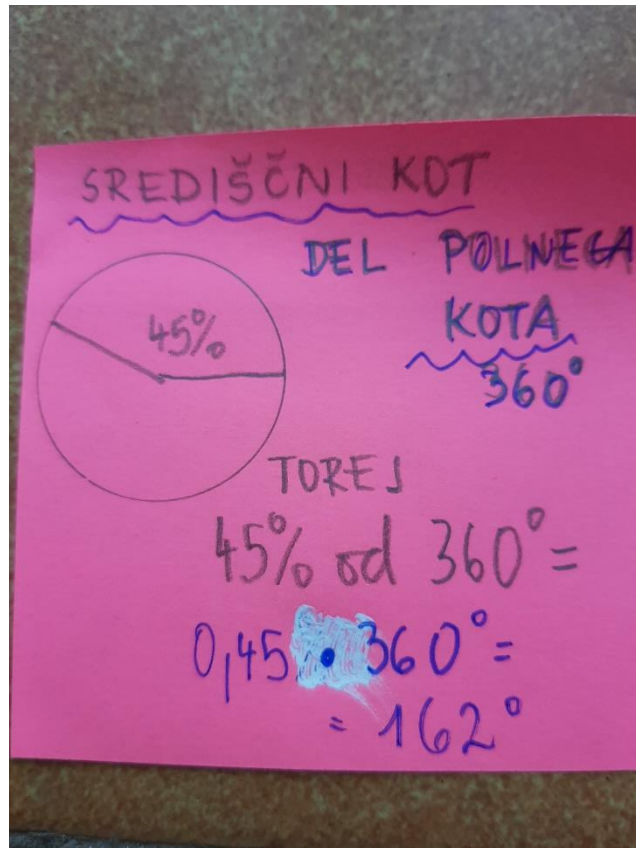 SREDIŠČNI KOT
DEL POLNEGA
KOTA
360°
45%
TOREJ
45% od 360° =
0,45 • 360° =
= 162°